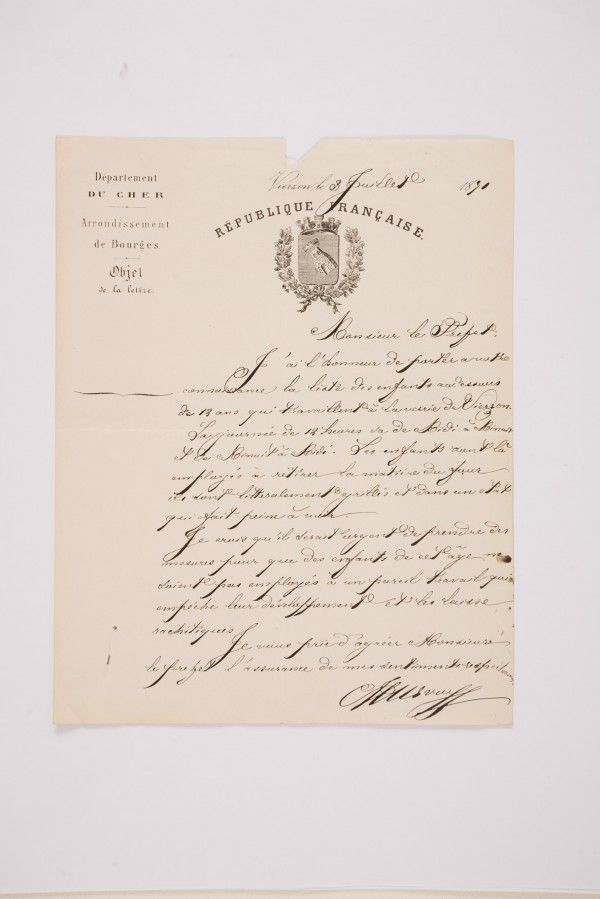 Département
DU CHER
Arrondissement
de Bourges
Objet
de la lettre.
Vierzon le 8 Juillet 1890
RÉPUBLIQUE FRANÇAISE.
Monsieur le Prefet,
J'ai l'honneur de porter a votre
connaissance la liste des enfants au dessous
de 13 ans qui travaillent à la verrie de Vierzon.
La journée de 12 heures va de Midi à Minuit
et de Minuit à Midi. Les enfants sont là
employés à retirer la matière du four
ils sont littéralement grillés et dans un état
qui fait peine à voir.
Je crois qu'il serait urgent de prendre des
mesures pour que des enfants de cet âge ne
soient pas employés à un pareil travail qui
empêche leur développement et les laisse
rachitiques
Je vous prie d'agréer Monsieur
le prefet l'assurance de mes sentiments